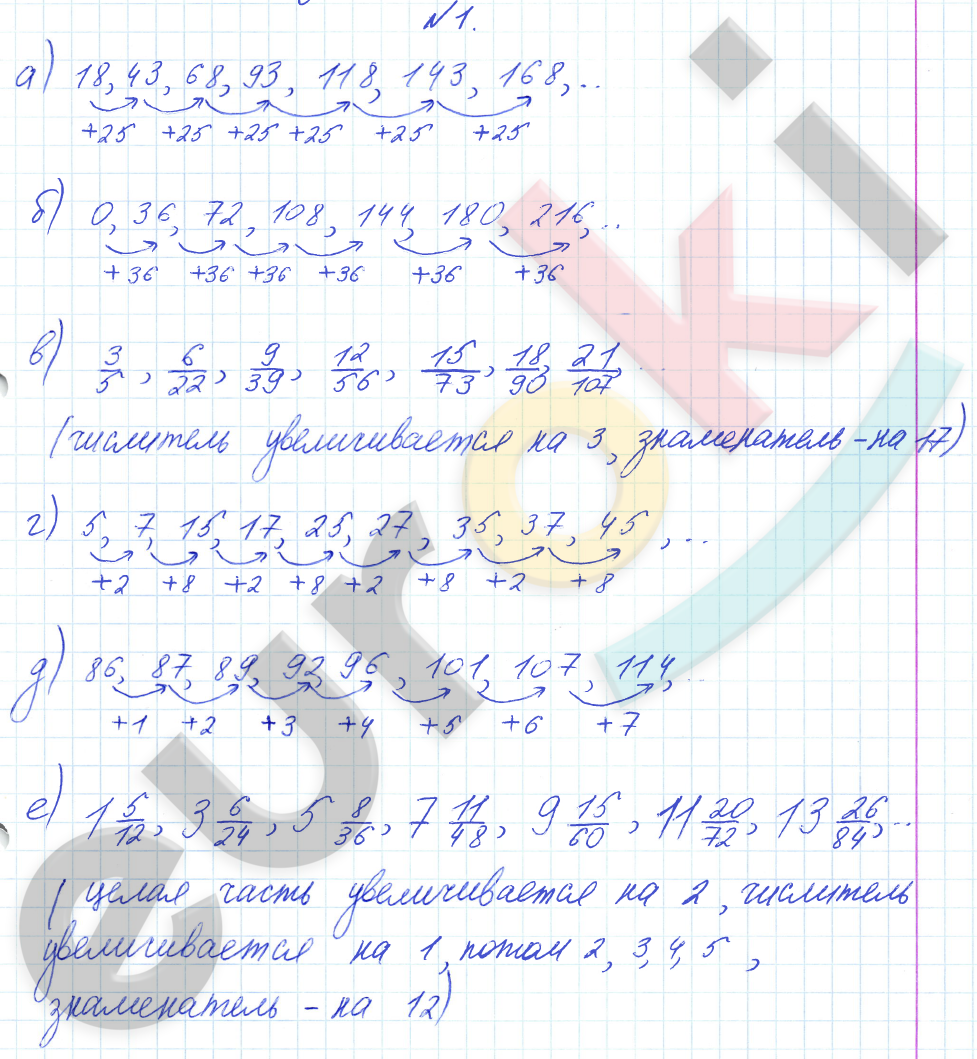 №1.
а) 18, 43, 68, 93, 118, 143, 168, ..
+25 +25 +25 +25 +25 +25
б) 0, 36, 72, 108, 144, 180, 216, ..
+36 +36 +36 +36 +36 +36
в) 3/5, 6/22, 9/39, 12/56, 15/73, 18/90, 21/107, ..
(числитель увеличивается на 3, знаменатель - на 17)
г) 5, 7, 15, 17, 25, 27, 35, 37, 45, ..
+2 +8 +2 +8 +2 +8 +2 +8
д) 86, 87, 89, 92, 96, 101, 107, 114, ..
+1 +2 +3 +4 +5 +6 +7
е) 1 5/12, 3 6/24, 5 8/36, 7 11/48, 9 15/60, 11 20/72, 13 26/84, ..
( целая часть увеличивается на 2, числитель
увеличивается на 1, потом 2, 3, 4, 5 ,
знаменатель - на 12)
euroki